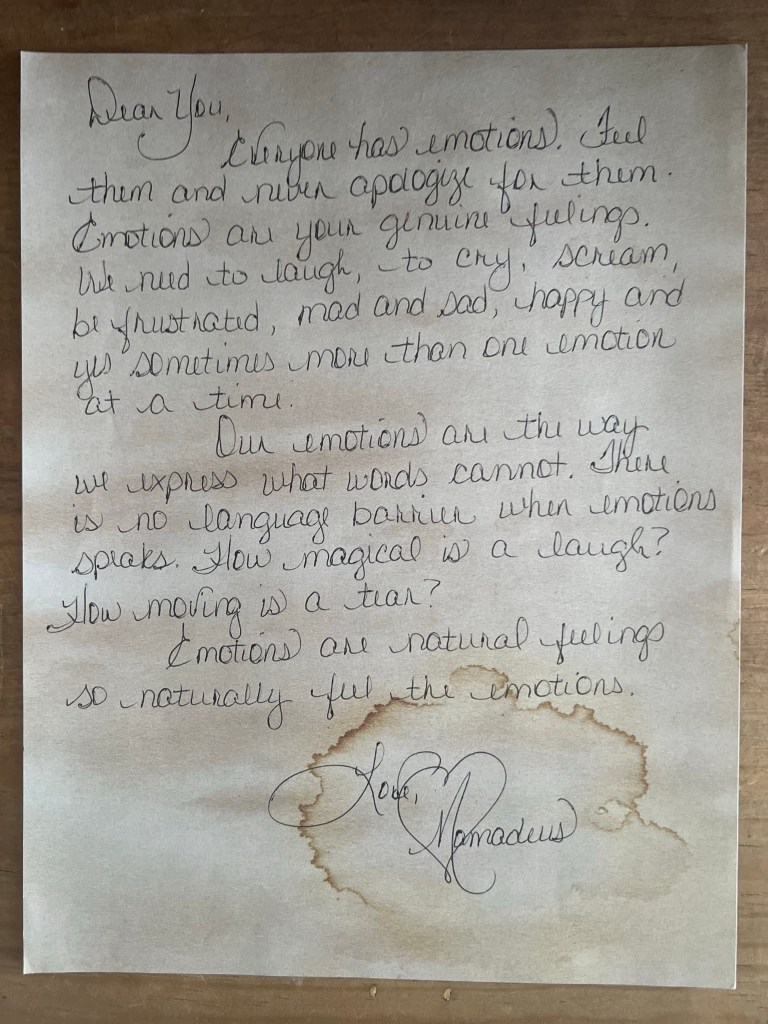 Dear You,
Everyone has emotions. Feel
them and never apologize for them.
Emotions are your genuine feelings.
We need to laugh, to cry, scream,
be frustrated, mad and sad, happy and
yes sometimes more than one emotion
at a time.
Our emotions are the way
we express what words cannot. There
is no language barrier when emotions
speaks. How magical is a laugh?
How moving is a tear?
Emotions are natural feelings
so naturally feel the emotions.
Love,
Mamadeus